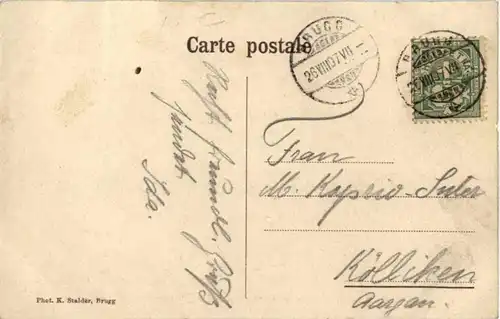 Carte postale
BRUGG
26 VIII 07 VII
BRUGG
26 VIII 07 VII
Recht freundl. Gruß
sendet
Ida.
Frau
M. Kaspar-Suter
Kölliken
Aargau.
Phot. K. Stalder, Brugg